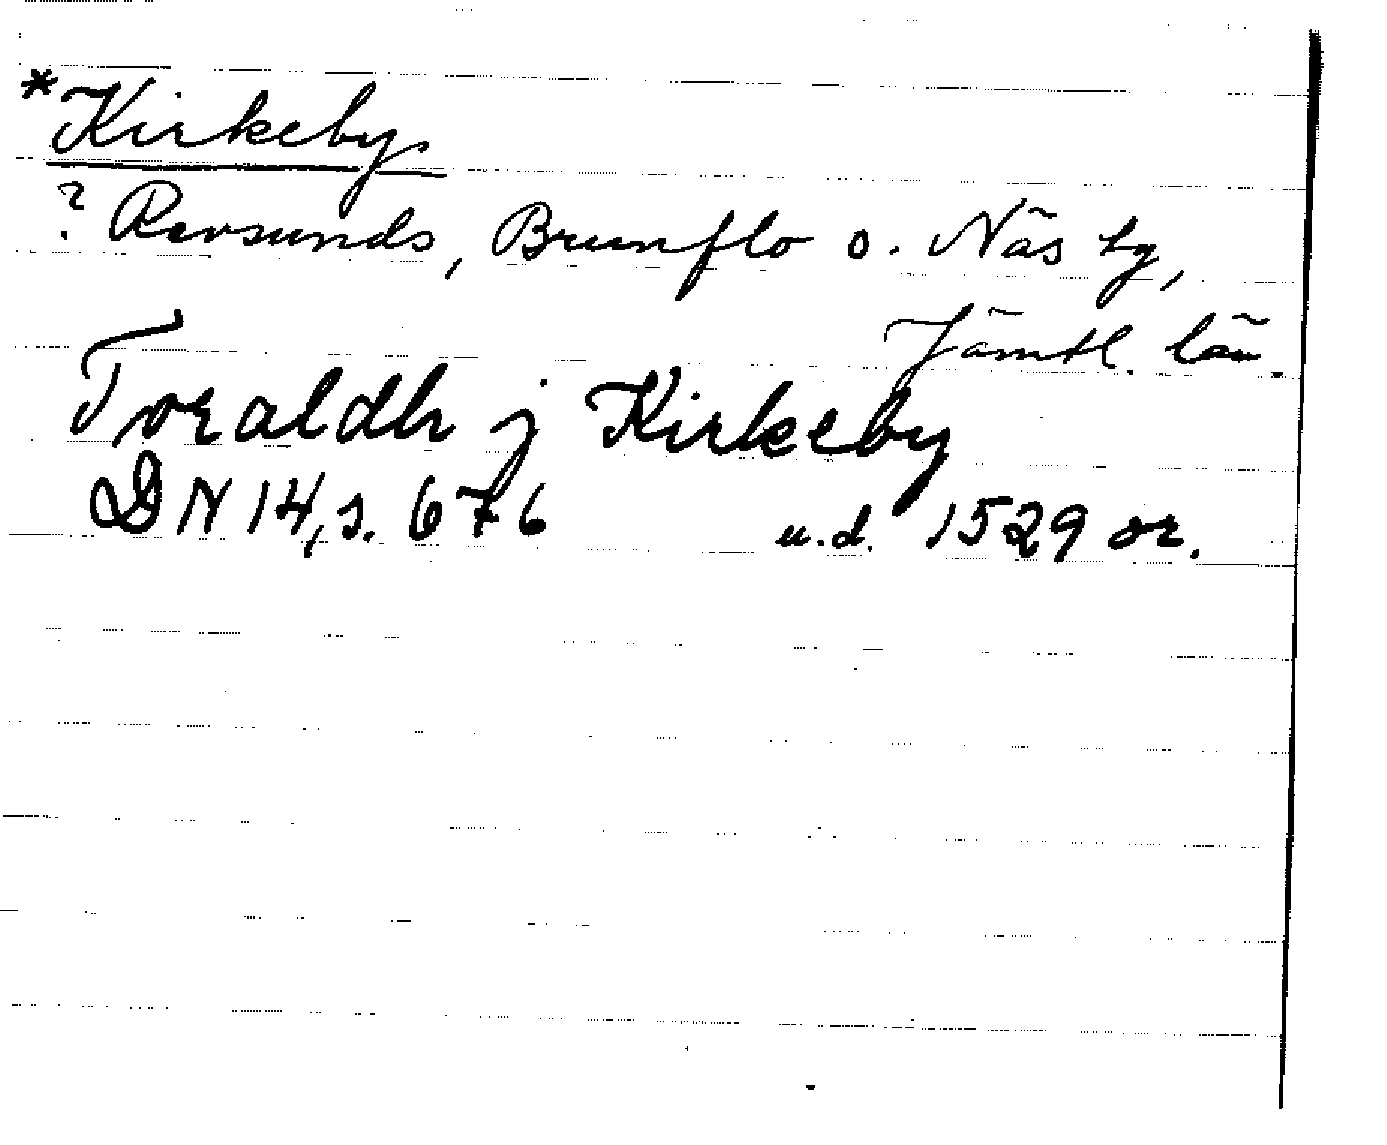 *Kirkeby
? Revsunds, Brunflo o. Näs tg,
Jämtl. län.
Toraldh j Kirkeby
DN 14, s. 676 u.d. 1529 or.